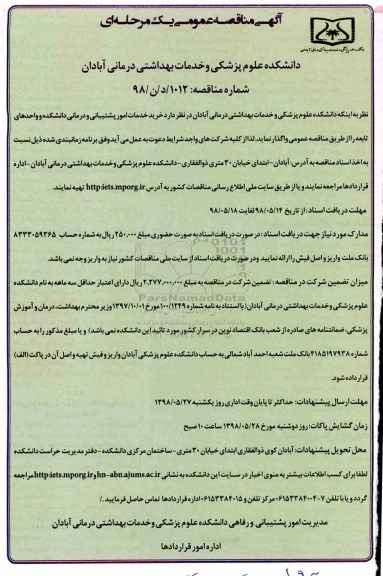 آگهی مناقصه عمومی یک مرحله‌ای
دانشکده علوم پزشکی و خدمات بهداشتی درمانی آبادان
شماره مناقصه: ۱۰۱۲/د/ن/۹۸
نظر به اینکه دانشکده علوم پزشکی و خدمات بهداشتی درمانی آبادان در نظر دارد خرید خدمات امور پشتیبانی و درمانی دانشکده و واحدهای
تابعه را از طریق مناقصه عمومی واگذار نماید، لذا از کلیه شرکت های واجد شرایط دعوت به عمل می آید وفق برنامه زمانبندی شده ذیل نسبت
به اخذ اسناد مناقصه به آدرس: آبادان -ابتدای خیابان ۳۰ متری ذوالفقاری -دانشکده علوم پزشکی وخدمات بهداشتی درمانی آبادان -اداره
قراردادها مراجعه نمایند و یا از طریق سایت ملی اطلاع رسانی مناقصات کشور به آدرس http:iets.mporg.ir تهیه نمایند.
مهلت دریافت اسناد: از تاریخ ۹۸/۰۵/۱۴ لغایت ۹۸/۰۵/۱۸
مدارک مورد نیاز جهت دریافت اسناد: در صورت دریافت اسناد به صورت حضوری مبلغ ۲۵۰,۰۰۰ ریال به شماره حساب ۸۳۳۳۰۵۹۳۶۵
بانک ملت واریز و اصل فیش را ارائه نمایید ودر صورت دریافت اسناد از سایت ملی مناقصات کشور نیاز به واریز وجه نمی باشد.
میزان تضمین شرکت در مناقصه: تضمین شرکت در مناقصه به مبلغ ۲,۲۷۷,۰۰۰,۰۰۰ ریال دارای اعتبار حداقل سه ماهه به نام دانشکده
علوم پزشکی وخدمات بهداشتی درمانی آبادان( بااستناد به نامه شماره ۱۰۰/۱۲۴۹ مورخ ۱۳۹۷/۱۰/۰۱ وزیر محترم بهداشت، درمان و آموزش
پزشکی، ضمانتنامه های صادره از شعب بانک اقتصاد نوین در سرار کشور مورد تائید این دانشکده نمی باشد) و یا مبلغ مذکور را به حساب
شماره ۴۱۸۵۱۹۷۹۳۸ بانک ملت شعبه احمد آباد شمالی به حساب دانشکده علوم پزشکی آبادان واریز و فیش تهیه و اصل آن در پاکت (الف)
قرارداده شود.
مهلت ارسال پیشنهادات: حداکثر تا پایان وقت اداری روز یکشنبه ۱۳۹۸/۰۵/۲۷
زمان گشایش پاکات: روز دوشنبه مورخ ۱۳۹۸/۰۵/۲۸ ساعت ۱۰ صبح
محل تحویل پیشنهادات: آبادان کوی ذوالفقاری ابتدای خیابان ۳۰ متری -ساختمان مرکزی دانشکده -دفتر مدیریت حراست دانشکده
لطفا برای کسب اطلاعات بیشتر به منوی اخبار در سایت این دانشکده به نشانی hn-abn.ajums.ac.ir و http:iets.mporg.ir مراجعه
گردد و یا با تلفن ۷-۰۶۱۵۳۳۸۴۰۰۴ مرکز تلفن و ۰۶۱۵۳۳۸۴۰۱۵ اداره قراردادها تماس حاصل فرمایید./
مدیریت امور پشتیبانی و رفاهی دانشکده علوم پزشکی وخدمات بهداشتی درمانی آبادان
اداره امور قراردادها